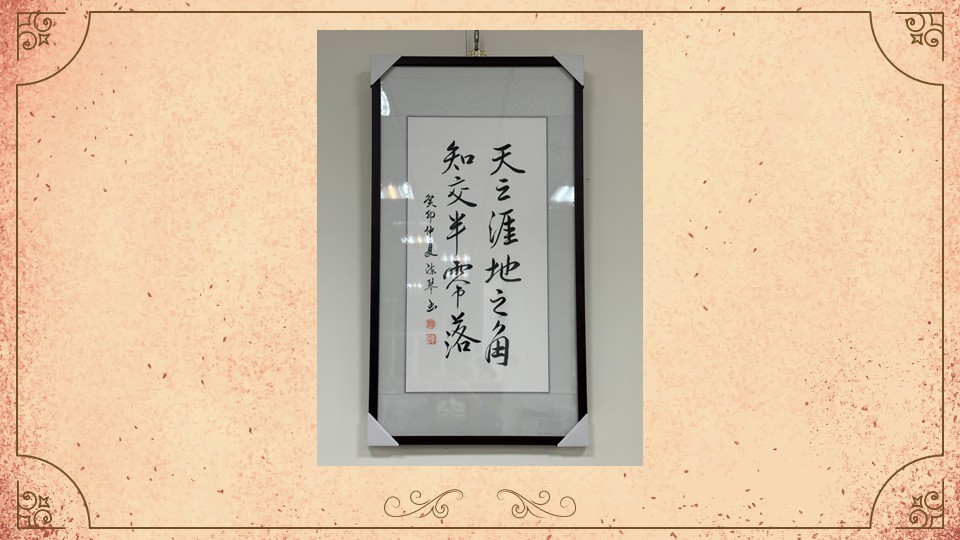 天之涯地之角
知交半零落
癸卯仲夏
书